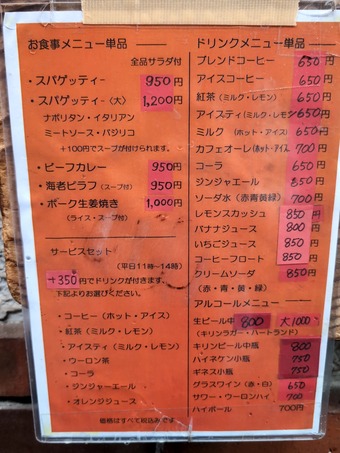 お食事メニュー単品
全品サラダ付
・スパゲッティー 950円
・スパゲッティー（大） 1,200円
ナポリタン・イタリアン
ミートソース・バジリコ
＋100円でスープが付けられます。
・ビーフカレー 950円
・海老ピラフ（スープ付） 950円
・ポーク生姜焼き 1,000円
（ライス・スープ付）
サービスセット
（平日11時～14時）
＋350円でドリンクが付きます。
下記よりお選びください。
・コーヒー（ホット・アイス）
・紅茶（ミルク・レモン）
・アイスティ（ミルク・レモン）
・ウーロン茶
・コーラ
・ジンジャーエール
・オレンジジュース
価格はすべて税込みです
ドリンクメニュー単品
ブレンドコーヒー 650円
アイスコーヒー 650円
紅茶（ミルク・レモン） 650円
アイスティ（ミルク・レモン 650円
ミルク （ホット・アイス） 650円
カフェオーレ（ホット・アイス 700円
コーラ 650円
ジンジャエール 650円
ソーダ水（赤青黄緑） 700円
レモンスカッシュ 850円
バナナジュース 800円
いちごジュース 850円
コーヒーフロート 850円
クリームソーダ 850円
（赤・青・黄・緑）
アルコールメニュー
生ビール中 800 大1000
（キリンラガー・ハートランド）
キリンビール中瓶 800
ハイネケン小瓶 750
ギネス小瓶 750
グラスワイン（赤・白） 650
サワー・ウーロンハイ 700
ハイボール 700円